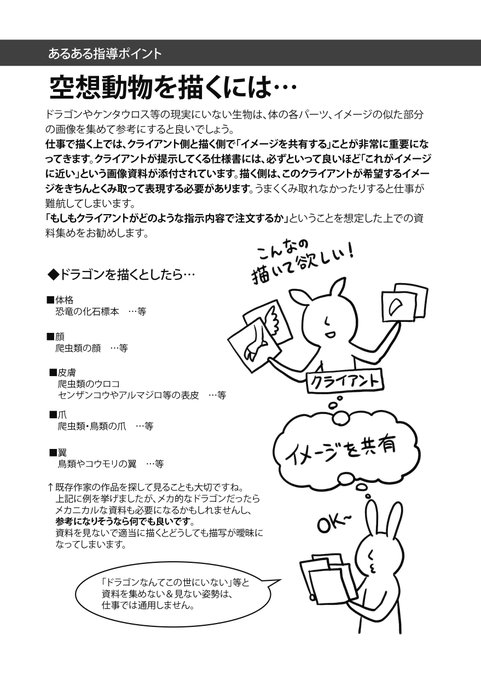 あるある指導ポイント
空想動物を描くには…
ドラゴンやケンタウロス等の現実にいない生物は、体の各パーツ、イメージの似た部分
の画像を集めて参考にすると良いでしょう。
仕事で描く上では、クライアント側と描く側で「イメージを共有する」ことが非常に重要にな
ってきます。クライアントが提示してくる仕様書には、必ずといって良いほど「これがイメージ
に近い」という画像資料が添付されています。描く側は、このクライアントが希望するイメー
ジをきちんとくみ取って表現する必要があります。うまくくみ取れなかったりすると仕事が
難航してしまいます。
「もしもクライアントがどのような指示内容で注文するか」ということを想定した上での資
料集めをお勧めします。
こんなの
描いて欲しい!
◆ドラゴンを描くとしたら…
■体格
恐竜の化石標本 …等
■顔
爬虫類の顔 …等
■皮膚
爬虫類のウロコ
センザンコウやアルマジロ等の表皮 …等
■爪
爬虫類・鳥類の爪 …等
■翼
鳥類やコウモリの翼 …等
↑既存作家の作品を探して見ることも大切ですね。
上記に例を挙げましたが、メカ的なドラゴンだったら
メカニカルな資料も必要になるかもしれませんし、
参考になりそうなら何でも良いです。
資料を見ないで適当に描くとどうしても描写が曖昧に
なってしまいます。
クライアント
イメージを共有
OK~
「ドラゴンなんてこの世にいない」等と
資料を集めない&見ない姿勢は、
仕事では通用しません。